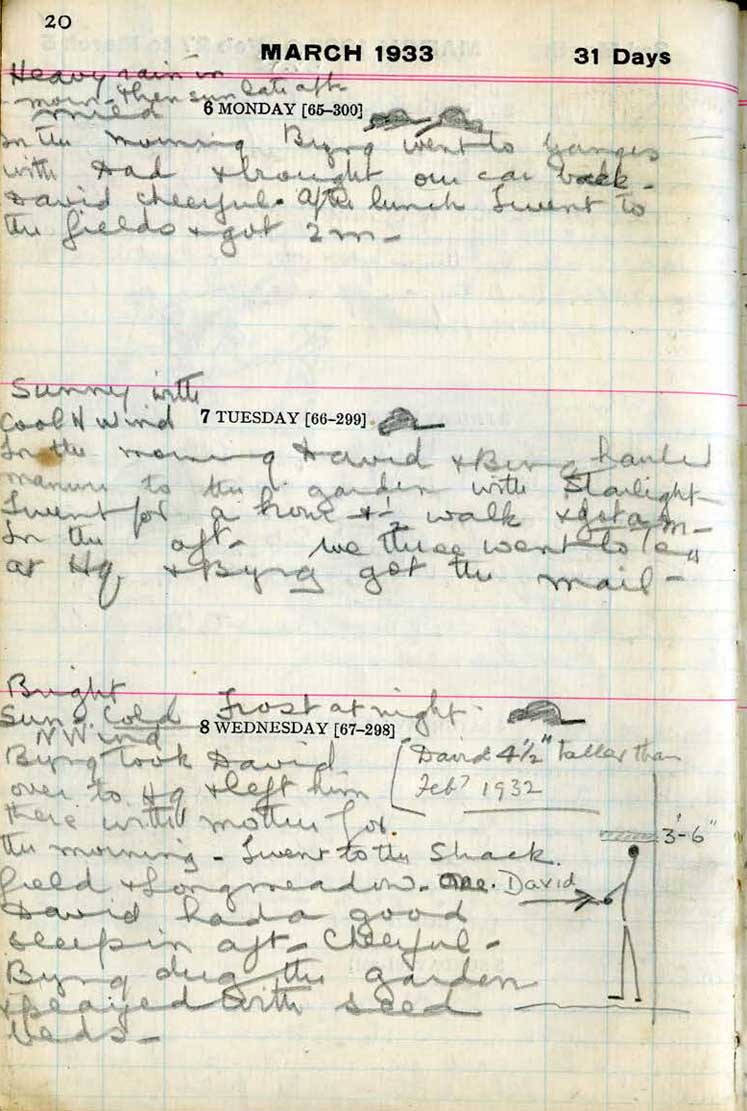 20
MARCH 1933 31 Days
Heavy rain in
morn - then sun late aft
mild
6 MONDAY [65-300]
In the morning Byng went to Ganges
with Dad & brought our car back -
David cheerful. After lunch I went to
the fields & got 2 m -
Sunny with
Cool N wind
7 TUESDAY [66-299]
In the morning David & Byng hauled
manure to the garden with Starlight
I went for a hour + ½ walk & got a m -
In the aft - we three went to tea
at Hq. & Byng got the mail -
Bright
Sun. Cold Frost at night.
N W ind
8 WEDNESDAY [67-298]
Byng took David
over to Hq & left him
there with mother for
the morning - I went to the Shack
field & Longmeadow.
David had a good
sleep in aft - Cheerful -
Byng dug the garden
& played with seed
beds -
David 4½" taller than
Feb 7 1932
3'-6"
David